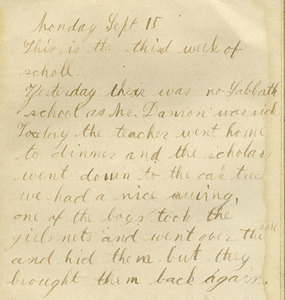 Monday Sept 15
This is the third week of
scholl.
Yesterday there was no Sabbath
school as Mr. Damon was sick
Today the teacher went home
to dinner and the scholars
went down to the oak tree
we had a nice swing,
one of the boys took the
girls nets and went over the
and hid them but they
brought them back again.